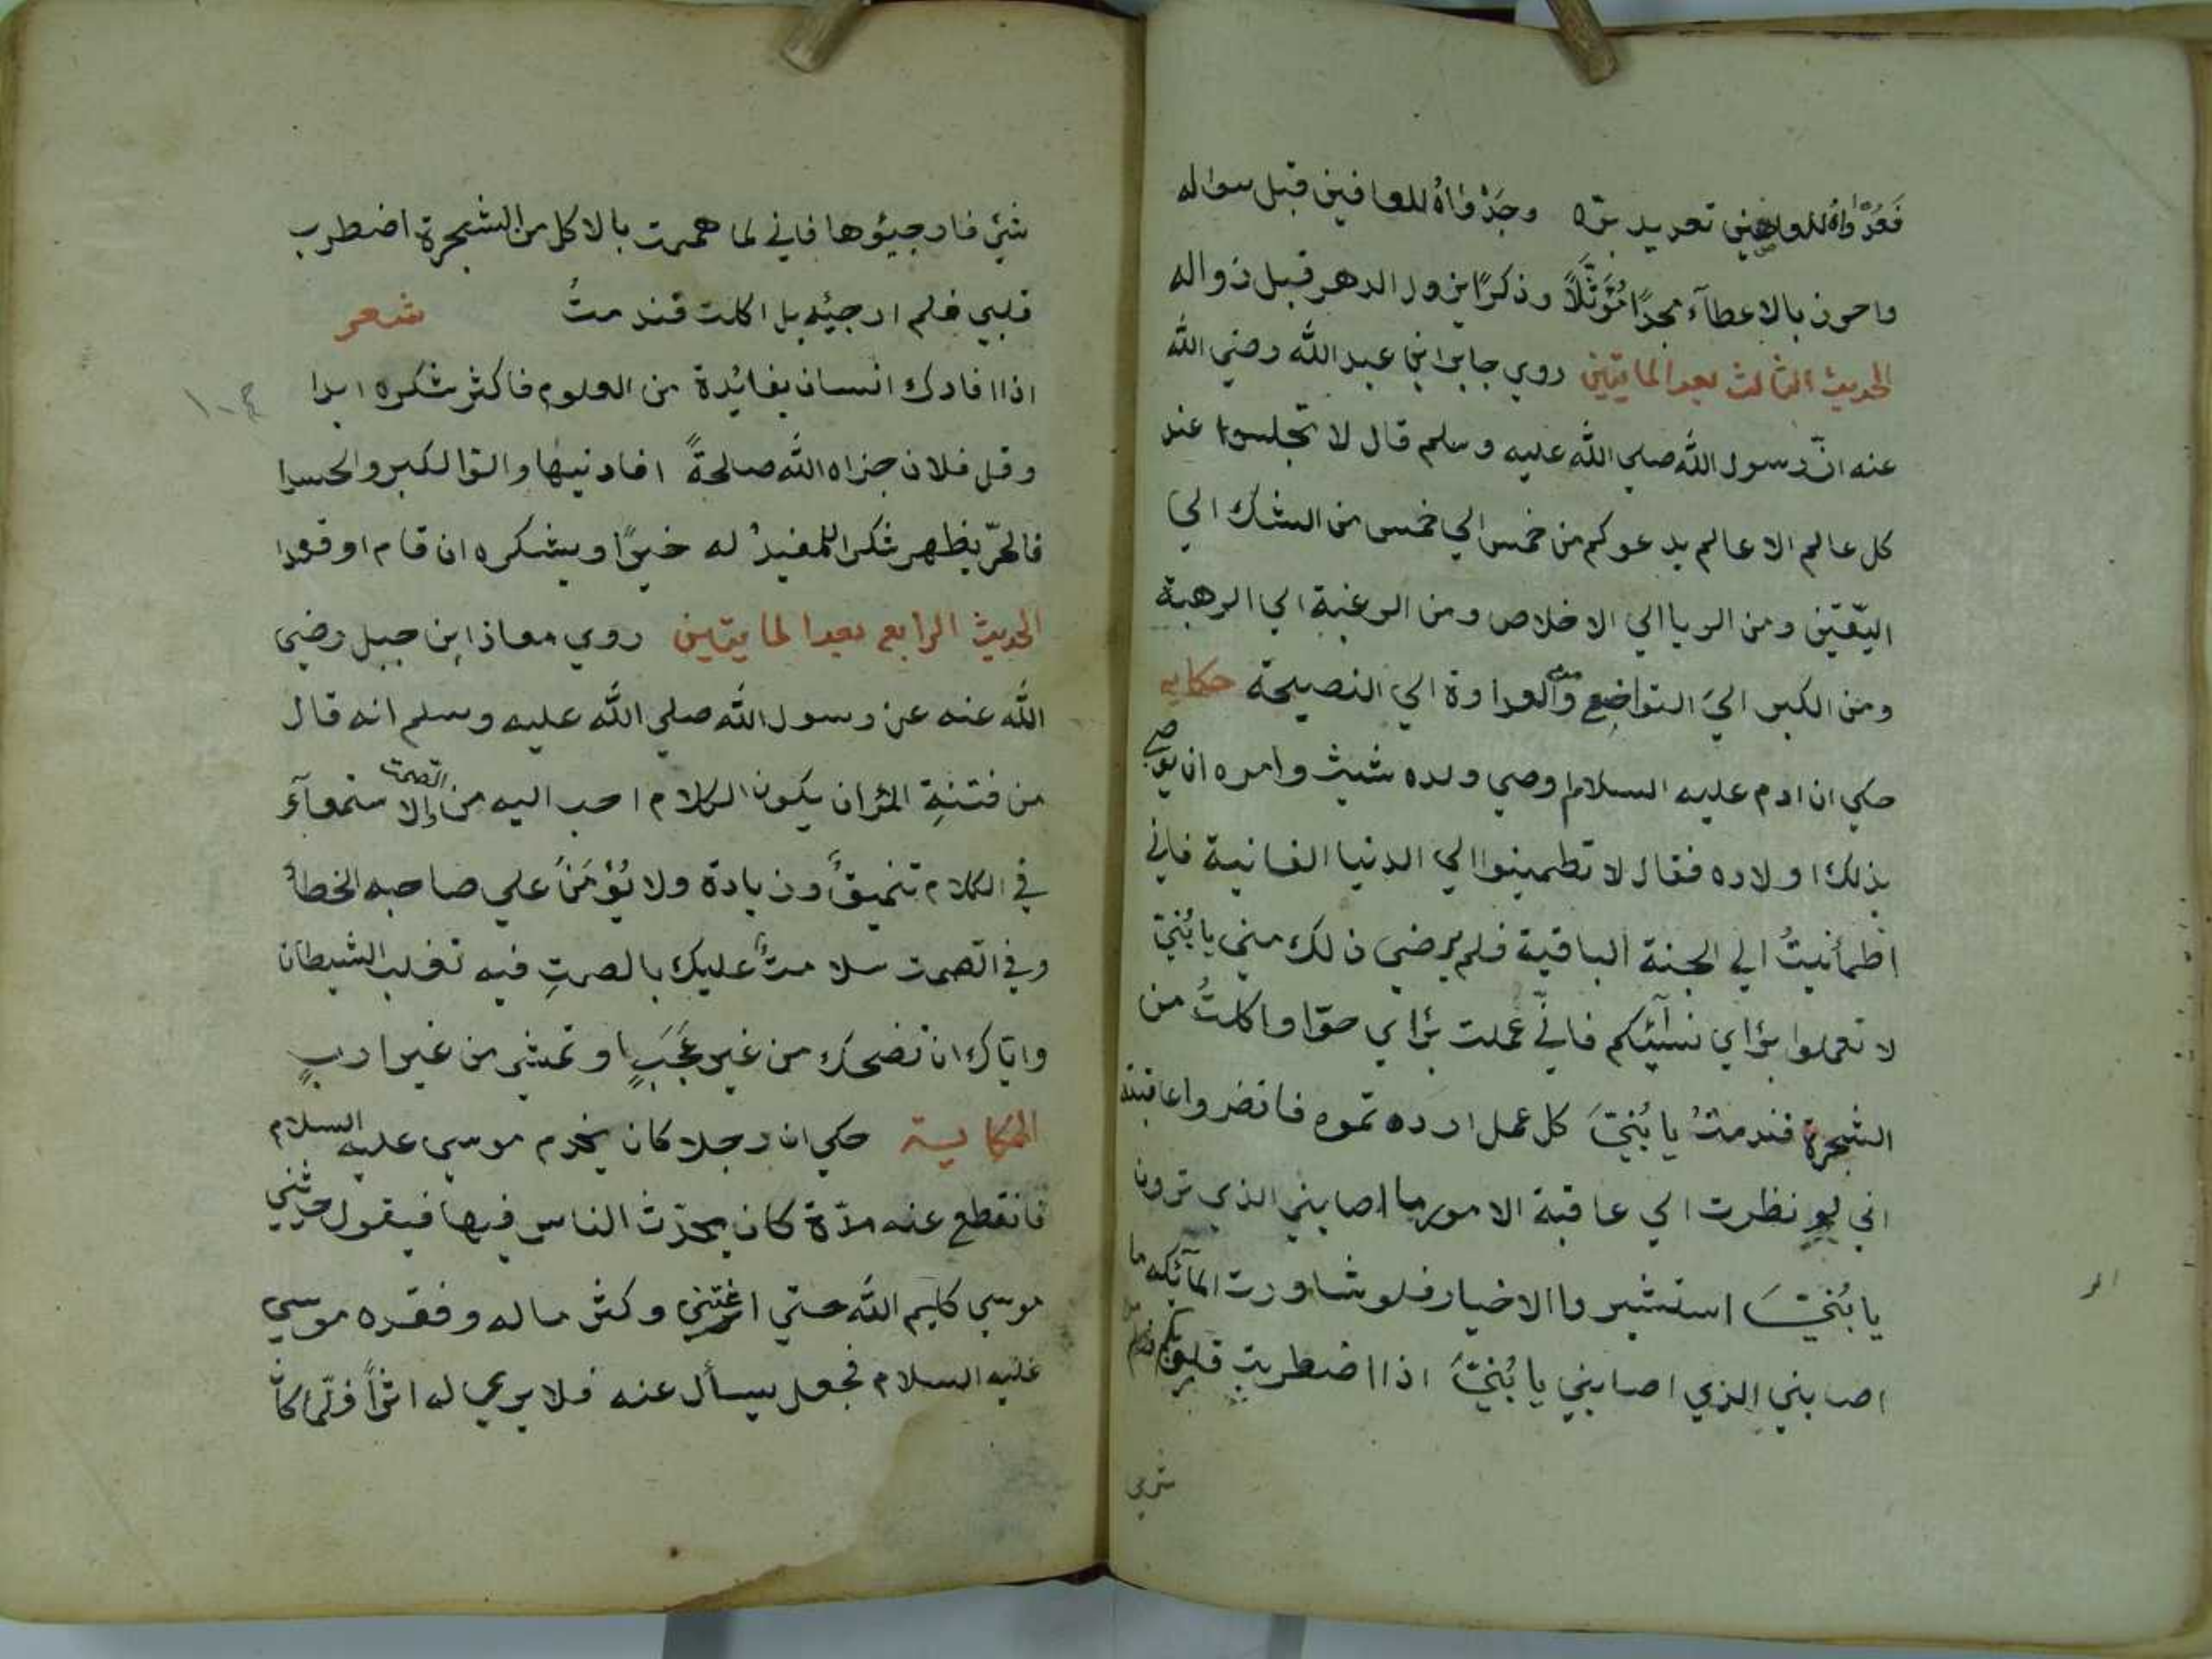 واحرز بالاعطآء مجدًا مُؤثَّلاً وذكرًا يزور الدهر قبل زواله
الحديث الثالث بعد المايتين روي جابر ابن عبد الله رضي الله
عنه انّ رسول الله صلي الله عليه وسلم قال لا تجلسوا عند
كل عالم الا عالم يدعوكم من خمس الي خمس من الشك الي
اليّقين ومن الريا الي الاخلاص ومن الرغبة الي الرهبة
ومن الكبر اليَ التواضع ومن العداوة الي النصيحة حكايه
حكي ان ادم عليه السلام اوصي ولده شيث وامره ان يوصي
بذلك اولاده فقال لا تطمينوا الي الدنيا الفانية فاني
اطمأنيتُ الي الجنة الباقية فلم يرضي ذلك مني يا بُنيّ
لا تعملوا برٔاي نسآئكم فانّي عملت برٔاي حوّا واكلتُ من
الشجرة فندمتُ يا بُنيّ كل عمل ارده تموه فانضروا عاقبته
اني لو نظرت الي عاقبة الامور ما اصابني الذي ترون
يا بُنيّ استشيروا الاخيار فلو شاورت المآئكه ما
اصابني الذي اصابني يا بُنيّ اذا اضطربت قلوبكم
شيئ فارجيؤها فاني لما هممت بالاكل من الشجرة اضطرب
قلبي فلم ارجيئه بل اكلت فندمتُ شعر
اذا افادك انسان بفايُدة من العلوم فاكثر شكره ابدا
وقل فلان جزاه الله صالحةً افادنيها والقوا الكبر والحسدا
فالحرّ يظهر شكرا للمفيدُ له خيرًا ويشكره ان قام او قعدا
الحديث الرابع بعد المايتين روي معاذ ابن جبل رضي
الله عنه عن رسول الله صلي الله عليه وسلم انه قال
من فتنةِ المرٔ ان يكون الكلام احب اليه من الصمت والا ستمعآءَ
في الكلام تنميقٌ وزيادة ولا يُؤمَنَ علي صاحبه الخطأ
وفي الصمت سلامتٌ عليك بالصمتِ فيه تغلب الشيطان
وايّاك ان تضحك من غير عَجَبٍ او تمشي من غير اربٍ
الحكاية حكي ان رجلا كان يخدم موسي عليه السلام
فانقطع عنه مدّة كان يحدّث الناس فيها فيقول حدثني
موسي كليم الله حتي اغتني وكثر ماله وفقده موسي
عليه السلام فجعل يسأل عنه فلا يري له اثرًا فلمّا كان